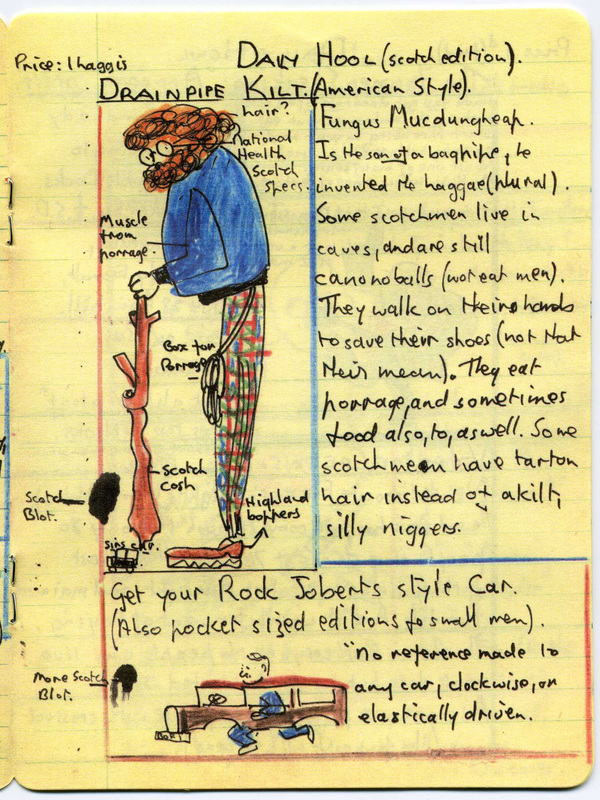 Price: 1 haggis
DAILY HOOL (scotch edition).
DRAINPIPE KILT. (American Style).
hair?
National
Health
Scotch
Specs.
Muscle
from
porrage.
Box for
Porrage
Scotch
cosh
Highland
boppers
Scotch
Blot.
Fungus Mucdungheap.
Is the son of a bagpipe, he
invented the haggae (plural).
Some scotchmen live in
caves, and are still
canonoballs (wot eat men).
They walk on theire hands
to save their shoes (not that
theirs mean). They eat
porrage, and sometimes
food also, to, aswell. Some
scotchmen have tarton
hair instead of a kilt,
silly niggers.
Get your Rock Joberts style Car.
(Also pocket sized editions fo small men).
More Scotch
Blot.
"no reference made to
any car, clockwise, or
elastically driven.